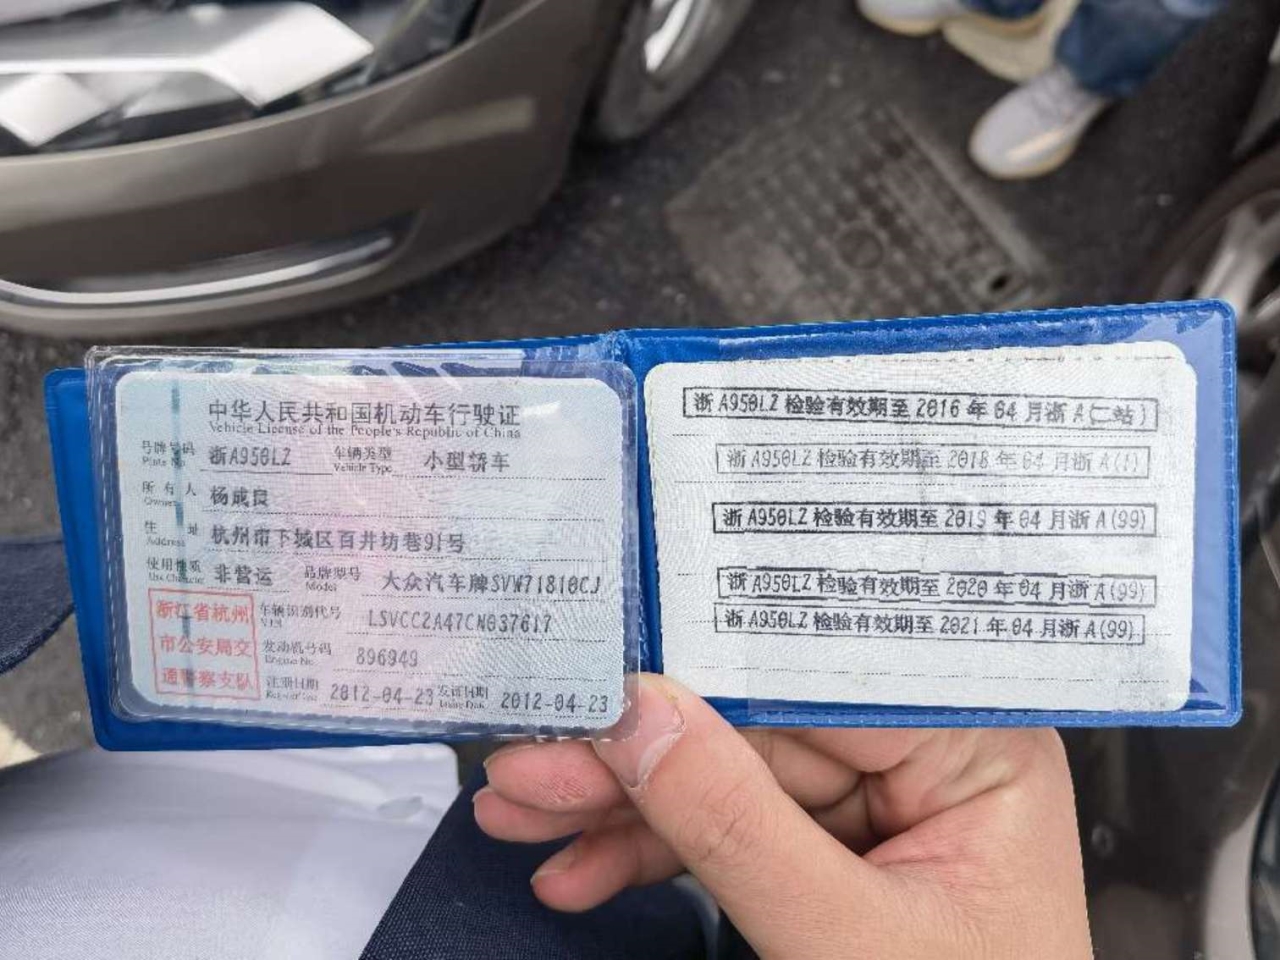 中华人民共和国机动车行驶证
Vehicle License of the People's Republic of China
号牌号码 Plate No. 浙A950LZ 车辆类型 Vehicle Type 小型轿车
所有人 Owner 杨成良
住址 Address 杭州市下城区百井坊巷91号
使用性质 Use Character 非营运 品牌型号 Model 大众汽车牌SVW71810CJ
车辆识别代号 VIN LSVCC2A47CN037617
发动机号码 Engine No. 896949
注册日期 2012-04-23 发证日期 Issue Date 2012-04-23
浙江省杭州
市公安局交
通警察支队
浙A950LZ检验有效期至2016年04月浙A(二站)
浙A950LZ检验有效期至2018年04月浙A(1)
浙A950LZ检验有效期至2019年04月浙A(99)
浙A950LZ检验有效期至2020年04月浙A(99)
浙A950LZ检验有效期至2021年04月浙A(99)